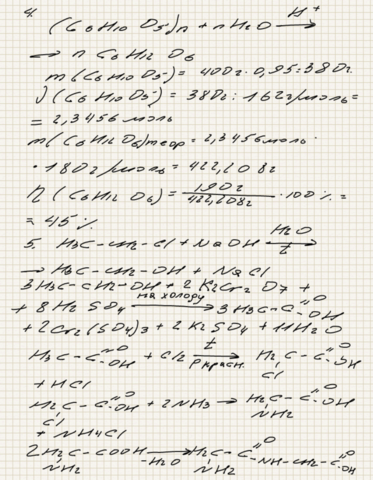 4.
(C6H10O5)n + nH2O H+ →
→ n C6H12O6
m(C6H10O5) = 400г · 0,95 = 380г.
ν(C6H10O5) = 380г : 162г/моль =
= 2,3456 моль
m(C6H12O6)теор = 2,3456моль ·
· 180г/моль = 422,208г
η(C6H12O6) = 190г / 422,208г · 100% =
= 45%
5. H3C-CH2-Cl + NaOH H2O / t →
→ H3C-CH2-OH + NaCl
3H3C-CH2-OH + 2K2Cr2O7 +
+ 8H2SO4 на холоду → 3H3C-C=O -OH
+ 2Cr2(SO4)3 + 2K2SO4 + 11H2O
H3C-C=O -OH + Cl2 t / Pкрасн. → H2C-C=O -OH
Cl
+ HCl
H2C-C=O -OH + 2NH3 → H2C-C=O -OH
Cl NH2
+ NH4Cl
2H2C-COOH -H2O → H2C-C=O -NH-CH2-C=O -OH
NH2 NH2